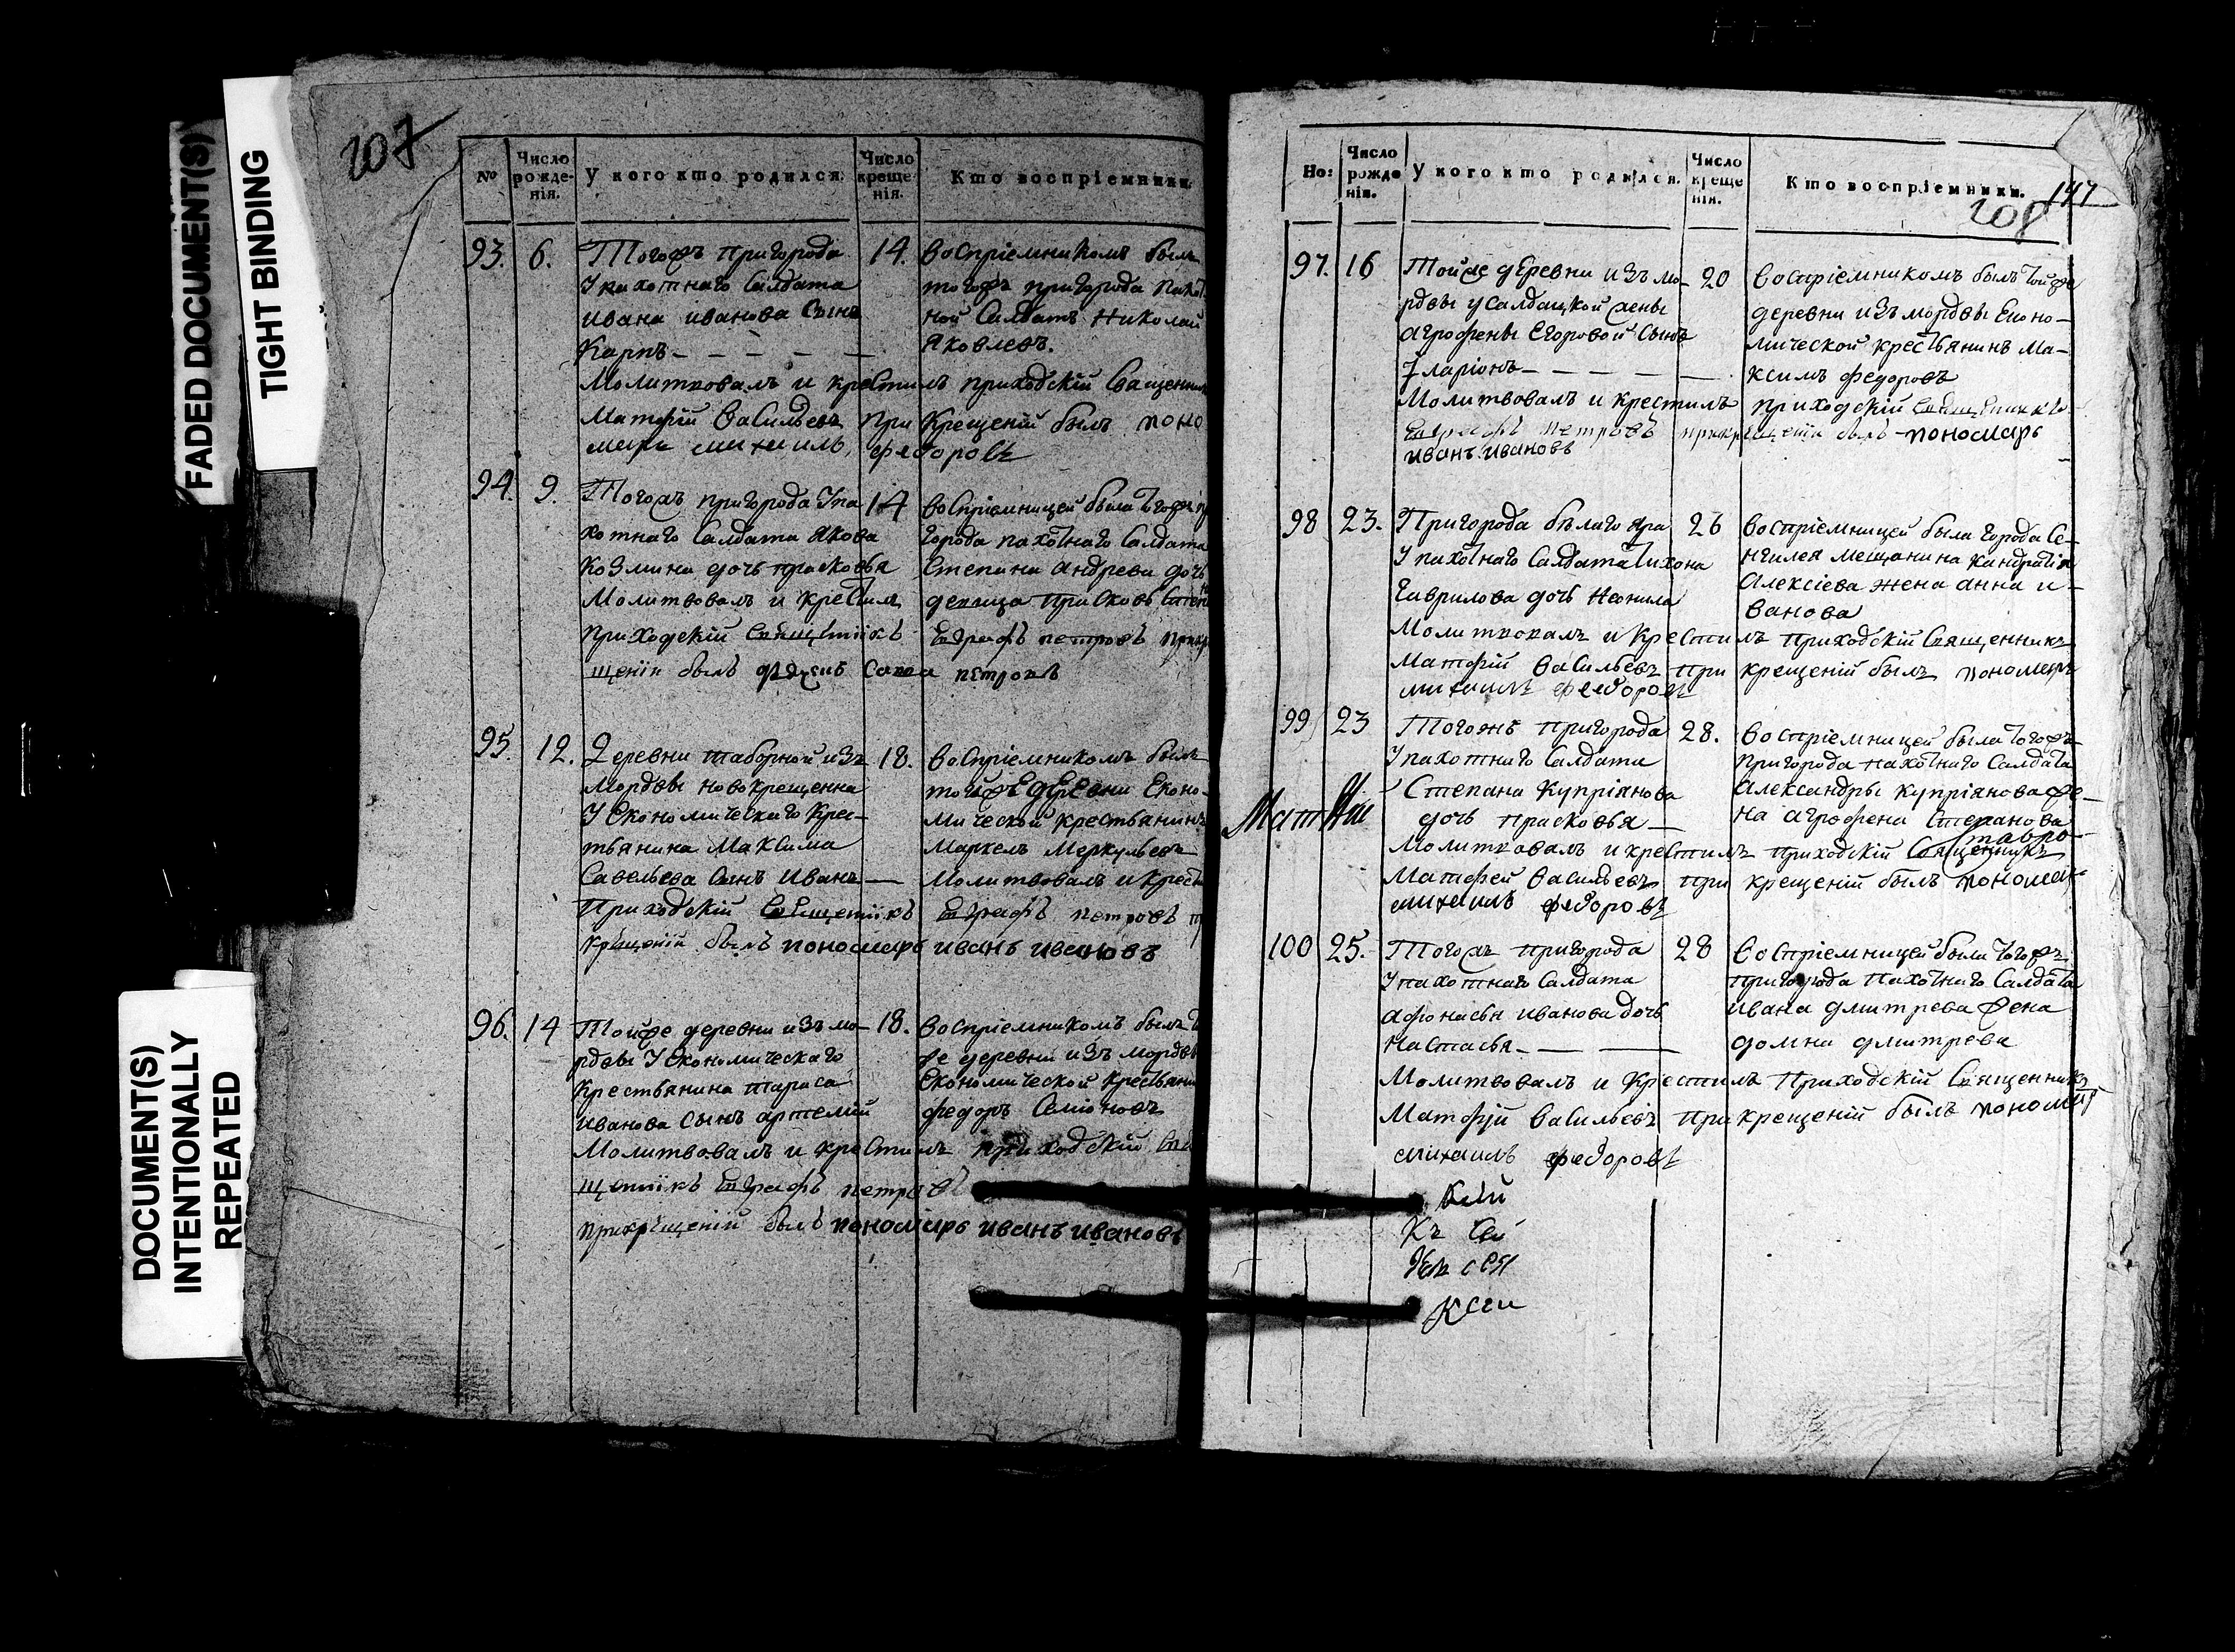 FADED DOCUMENT(S)
TIGHT BINDING
DOCUMENT(S)
INTENTIONALLY
REPEATED
207
№
Число рожденія.
У кого кто родился.
Число крещенія.
Кто воспріемники.
93. 6. Тогожъ пригорода
У пахотнаго Салдата
ивана иванова Сынъ
Карпъ
14. воспріемникомъ былъ
тогожъ пригорода пахот
ной Салдатъ Николай
Яковлевъ.
Молитвовалъ и крестилъ приходскій Священник
Матфій Васильевъ при крещеніи былъ поно
марь михаилъ федоровъ
94. 9. Тогожъ пригорода У па
хотнаго Салдата Якова
Козмина дочь прасковья
14 воспріемницей была тогожъ
города пахотнаго Салдата
Степана андреева дочь
девица
Молитвовалъ и крестилъ
приходскій Священникъ Евграфъ петровъ
щеніи былъ Савва петровъ
95. 12. Деревни таборной изъ
Мордвы новокрещенна
У Економическаго Крес-
тьянина Максима
Савельева Сынъ Иванъ
18. воспріемникомъ былъ
тойже деревни Еконо-
мической крестьянинъ
Маркелъ Меркульевъ
Молитвовалъ и крест
Приходскій Священникъ Евграфъ петровъ
крещеніи былъ пономарь иванъ ивановъ
96. 14 Тойже деревни изъ мо-
рдвы У Економическаго
Крестьянина тараса
иванова сынъ артемій
18. воспріемникомъ былъ
же деревни изъ мордвы
Економической крестьянин
федоръ Семіоновъ
Молитвовалъ и крестилъ приходскій Свя
щенникъ Евграфъ петровъ
прикрещеніи былъ пономарь иванъ ивановъ
Но:
Число рожденія.
У кого кто родился.
Число крещенія.
Кто воспріемники.
147
208
97. 16 Тойже деревни изъ мо-
рдвы у салдацкой жены
агрофены Егоровой Сынъ
Іларіонъ
20 воспріемникомъ былъ тойже
деревни изъ мордвы Еконо-
мической крестьянинъ Ма-
ксимъ федоровъ
Молитвовалъ и крестилъ приходскій Священникъ
Евграфъ петровъ прикрещеніи былъ пономарь
иванъ ивановъ
98 23. Пригорода белаго яра
У пахотнаго Салдата тихона
Гаврилова дочь Неонила
26 воспріемницей была города Се-
нгилея мещанина Кандратія
Алексіева жена анна и-
ванова
Молитвовалъ и Крестилъ приходскій Священникъ
Матфій Васильевъ при крещеніи былъ пономарь
михаилъ федоровъ
99 23 Тогожъ пригорода
У пахотнаго Салдата
Степана Купріянова
дочь прасковья
28. воспріемницей была тогожъ
пригорода пахотнаго Салдата
Александры купріянова же-
на агрофена Степанова
Молитвовалъ и крестилъ приходскій Священникъ
Матфей Васильевъ при крещеніи былъ пономарь
михаилъ федоровъ
100 25. Тогожъ пригорода
У пахотнаго Салдата
афонасья иванова дочь
Настасья
28 воспріемницей была тогожъ
пригорода пахотнаго Салдата
ивана дмитрева жена
домна дмитрева
Молитвовалъ и Крестилъ приходскій Священникъ
Матфій Васильевъ при крещеніи былъ пономарь
михаилъ федоровъ